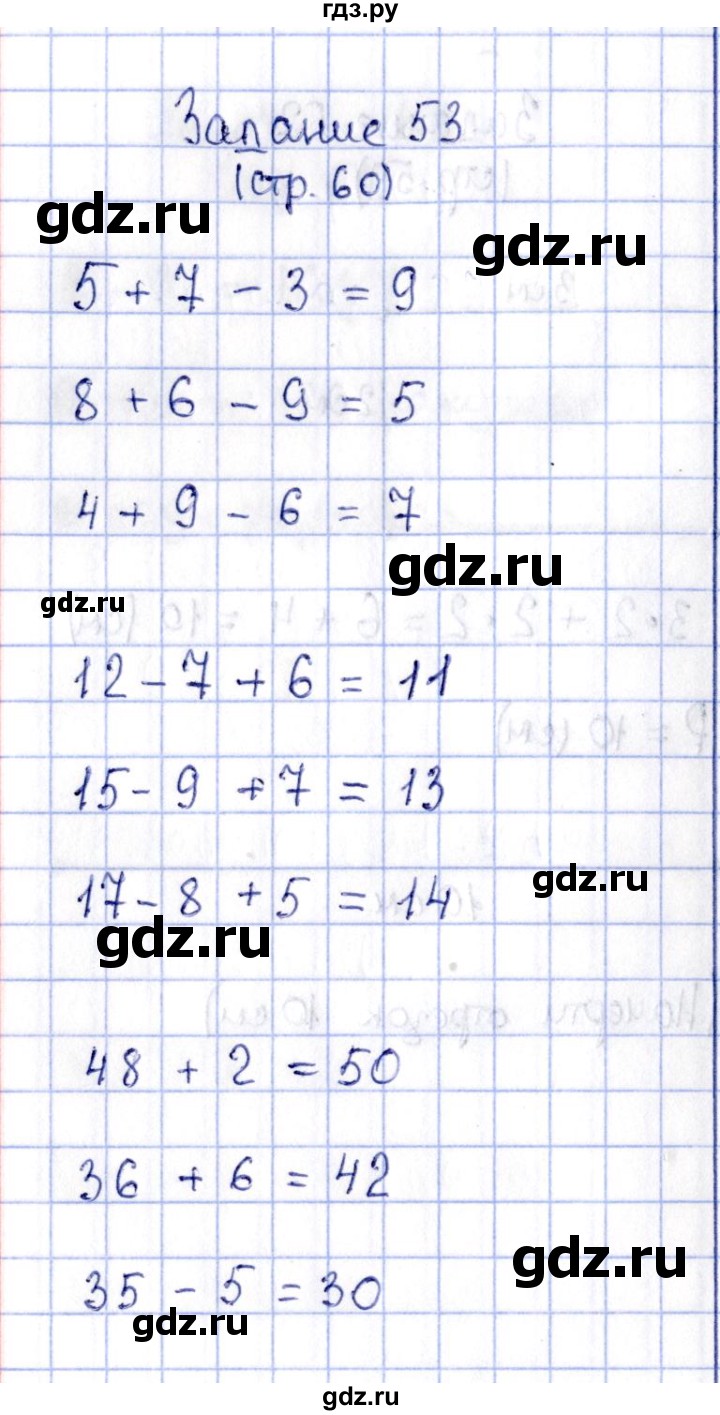 гдз.ру
Задание 53
(стр. 60)
gdz.ru
gdz.ru
5 + 7 - 3 = 9
8 + 6 - 9 = 5
4 + 9 - 6 = 7
gdz.ru
gdz.ru
12 - 7 + 6 = 11
15 - 9 + 7 = 13
17 - 8 + 5 = 14
gdz.ru
gdz.ru
48 + 2 = 50
36 + 6 = 42
gdz.ru
35 - 5 = 30
gdz.ru
gdz.ru